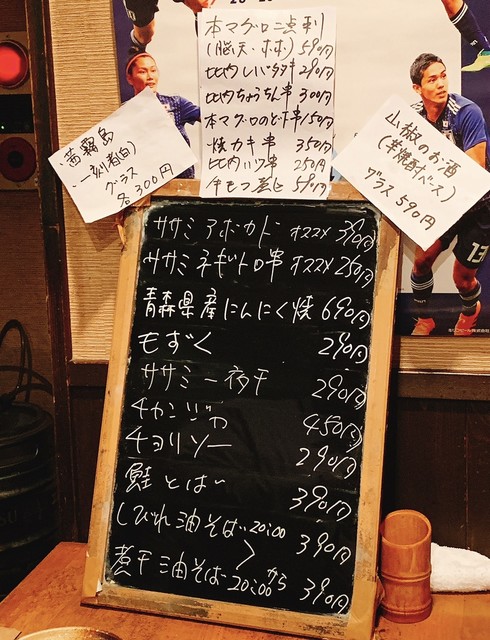 本マグロ二点刺
(脳天・ホホ) 590円
比内レバタタキ 290円
比内ちょうちん串 300円
本マグロのど串 150円
焼カキ串 350円
比内ハツ串 250円
牛モツ煮込 590円
茜霧島
一刻者(白)
グラス
各300円
山椒のお酒
(芋焼酎ベース)
グラス 590円
ササミアボカド オススメ 390円
ササミネギトロ串 オススメ 250円
青森県産にんにく焼 690円
もずく 290円
ササミ一夜干 290円
チャンジャ 450円
チョリソー 290円
鮭とばー 390円
しびれ油そば 20:00 390円
煮干油そば 20:00から 390円
13